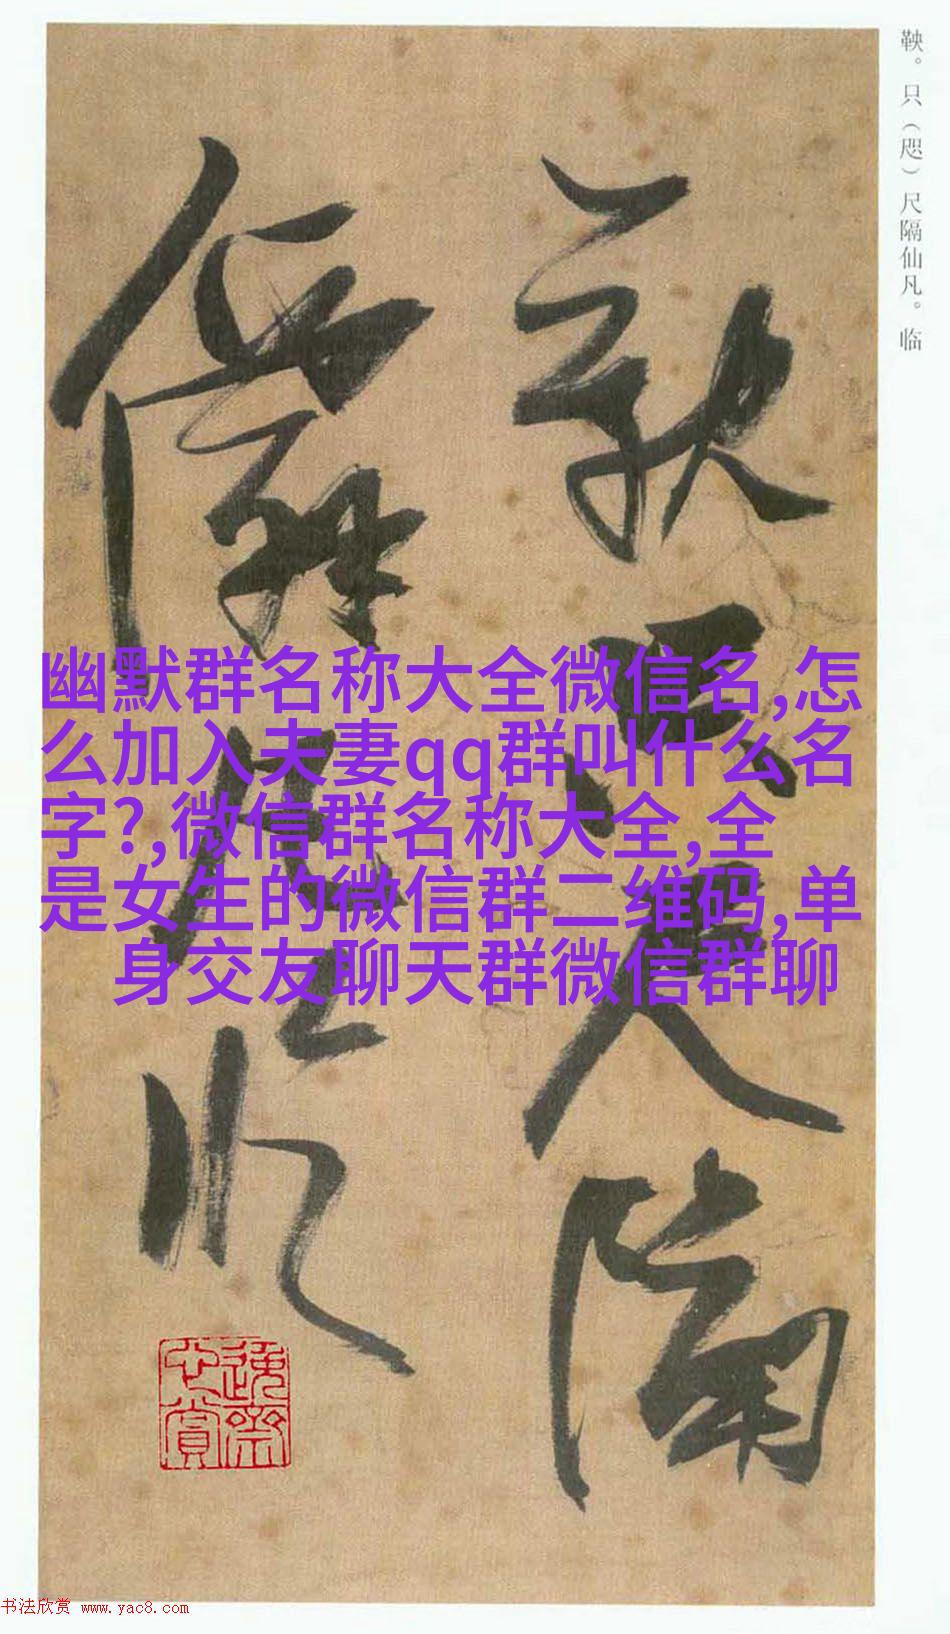 鞅。只（咫）尺隔仙凡。临
鞅只尺隔
僊凡临
幽默群名称大全微信名,怎
么加入夫妻qq群叫什么名
字?,微信群名称大全,全
是女生的微信群二维码,单
身交友聊天群微信群聊
书法欣赏 www.yac8.com